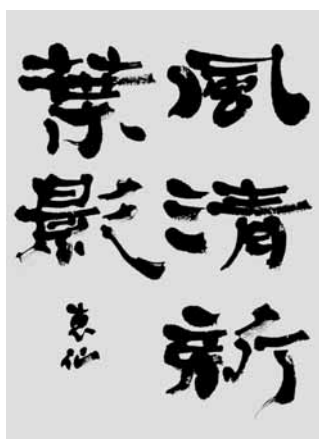 風清新
葉影
恵仙